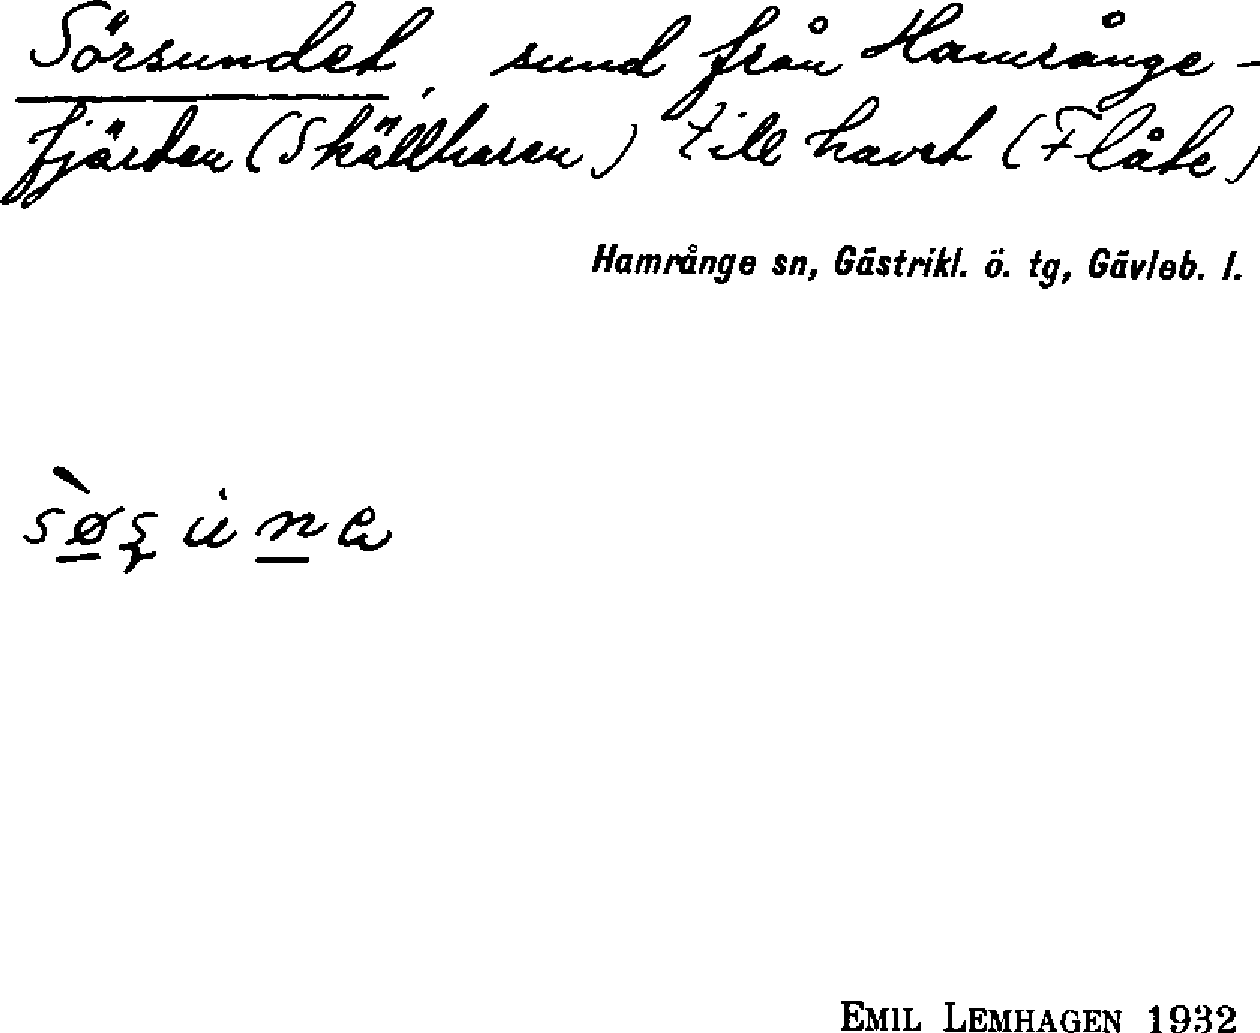 Sörsundet, sund från Hamrånge-
fjärden (Skällharen) till havet (Flåte)
Hamrånge sn, Gästrikl. ö. tg, Gävleb. l.
EMIL LEMHAGEN 1932